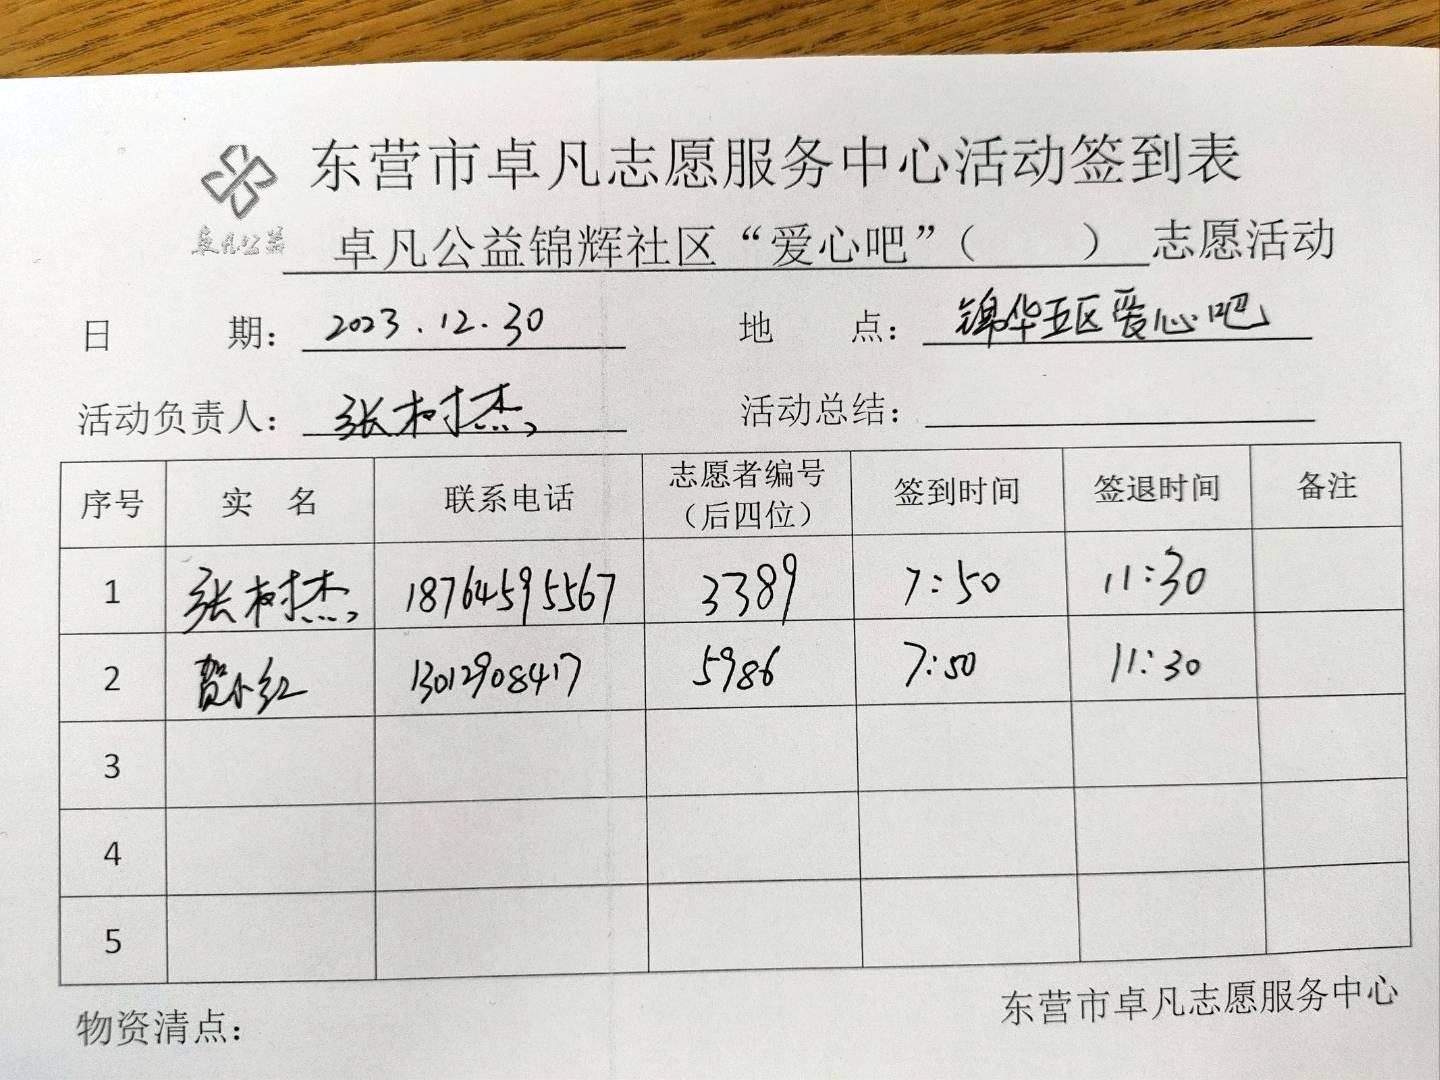 东营市卓凡志愿服务中心活动签到表
卓凡公益
卓凡公益锦辉社区“爱心吧”（　　）志愿活动
日期： 2023.12.30 地点： 锦华五区爱心吧
活动负责人： 张树杰 活动总结：
序号 实名 联系电话 志愿者编号（后四位） 签到时间 签退时间 备注
1 张树杰 18764595567 3389 7:50 11:30
2 贺小红 13012908417 5986 7:50 11:30
3
4
5
物资清点： 东营市卓凡志愿服务中心